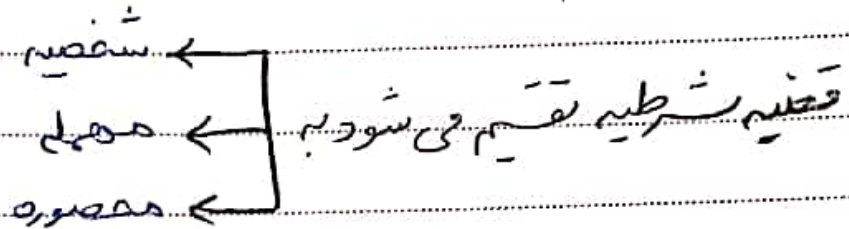 قضیه شرطیه تقسیم می شود به
شخصیه
مهمله
محصوره